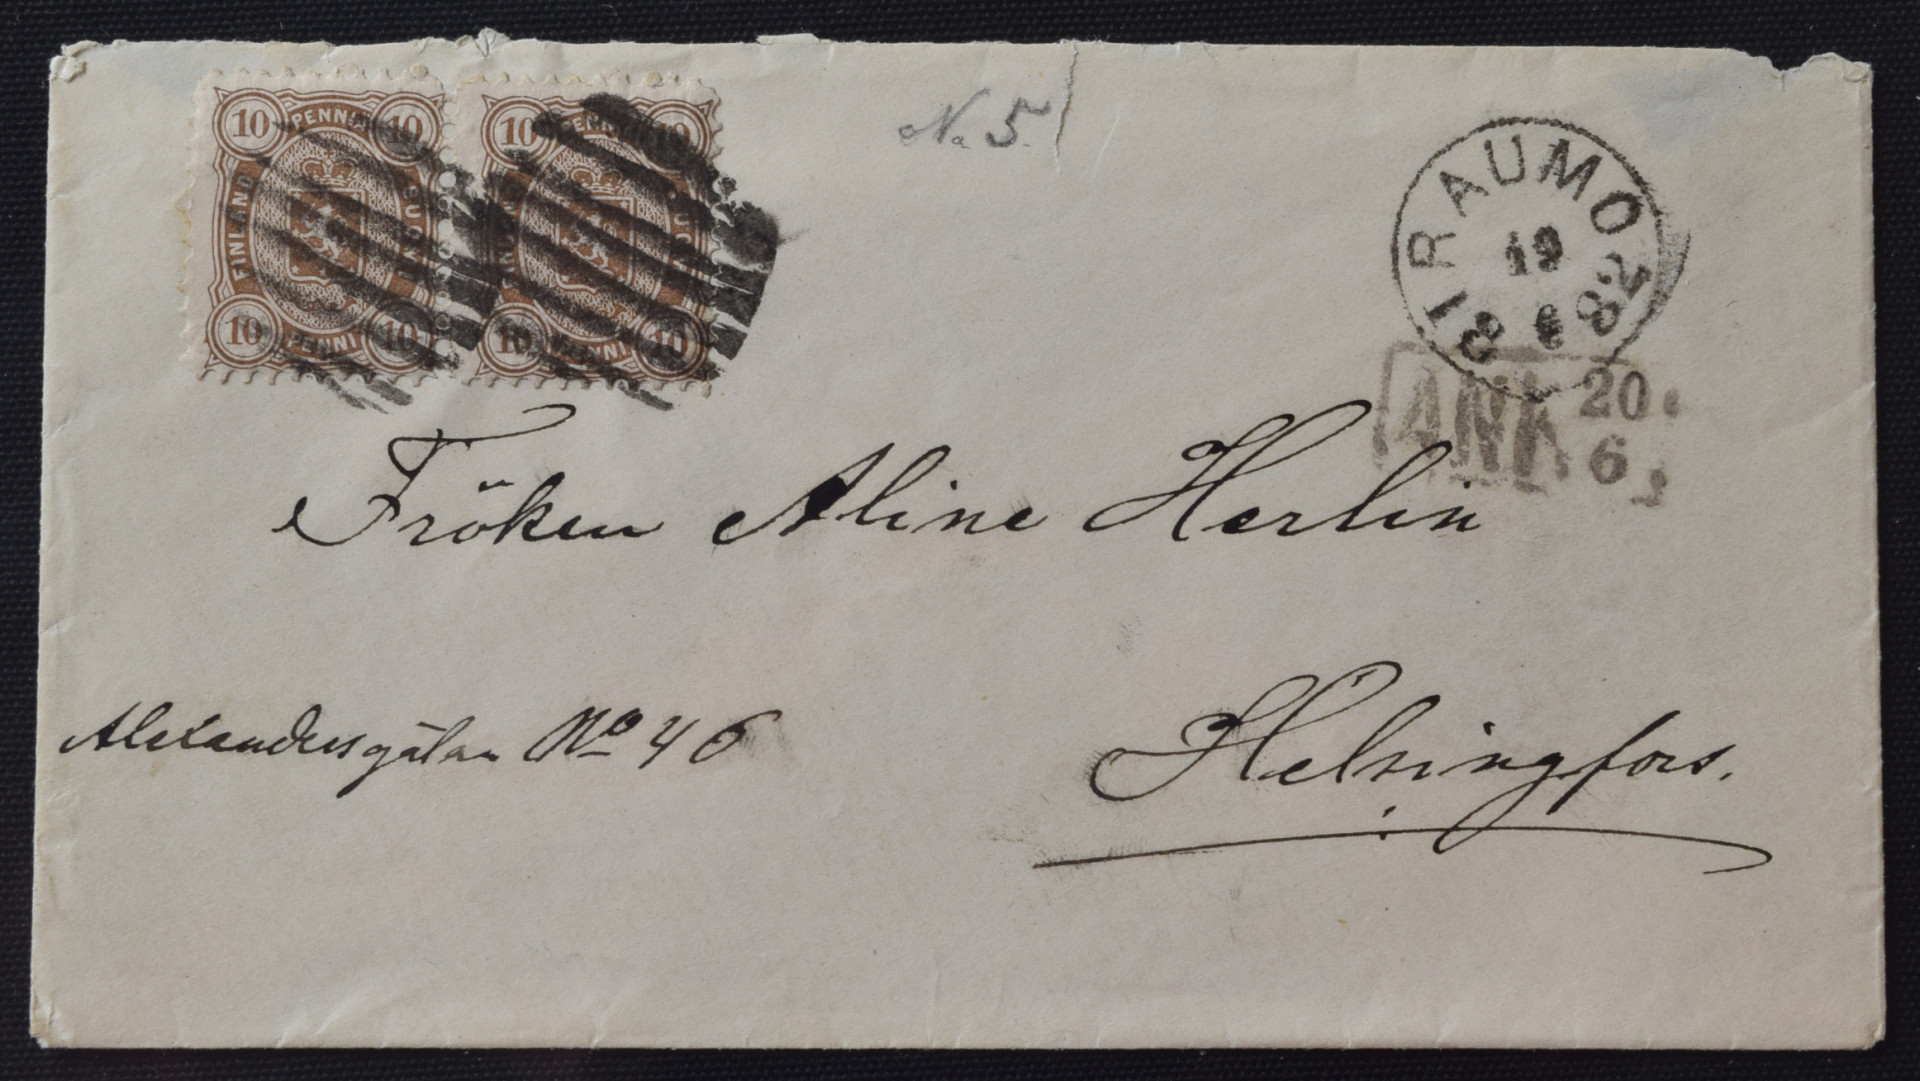 10 PENNIÄ 10
FINLAND SUOMI
10 PENNI 10
10 PENNIÄ 10
FINLAND SUOMI
10 PENNI 10
No 5.
RAUMO
19
6
1882
ANK 20
6
Fröken Aline Herlin
Alexandersgatan No 46
Helsingfors.